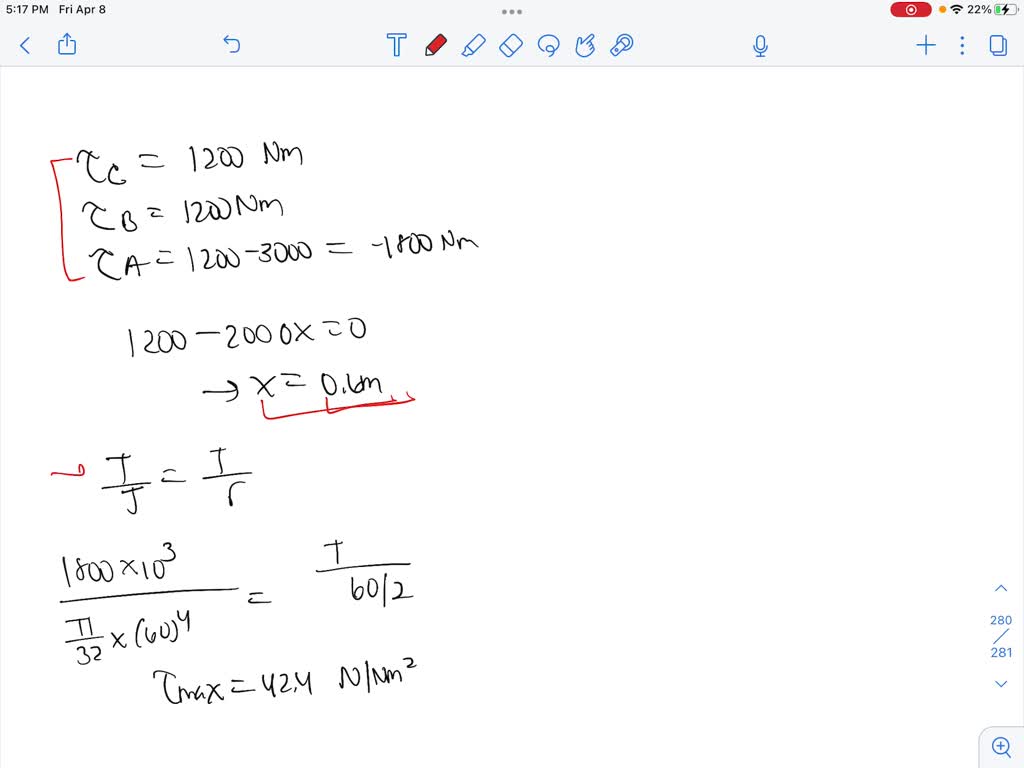 5:17 PM Fri Apr 8
22%
T
τC = 1200 Nm
τB = 1200 Nm
τA = 1200 - 3000 = -1800 Nm
1200 - 2000x = 0
→ x = 0.6m
T/J = T/r
1800 × 10³ / (π/32 × (60)⁴) = T / (60/2)
τmax = 42.4 N/Nm²
280
/
281